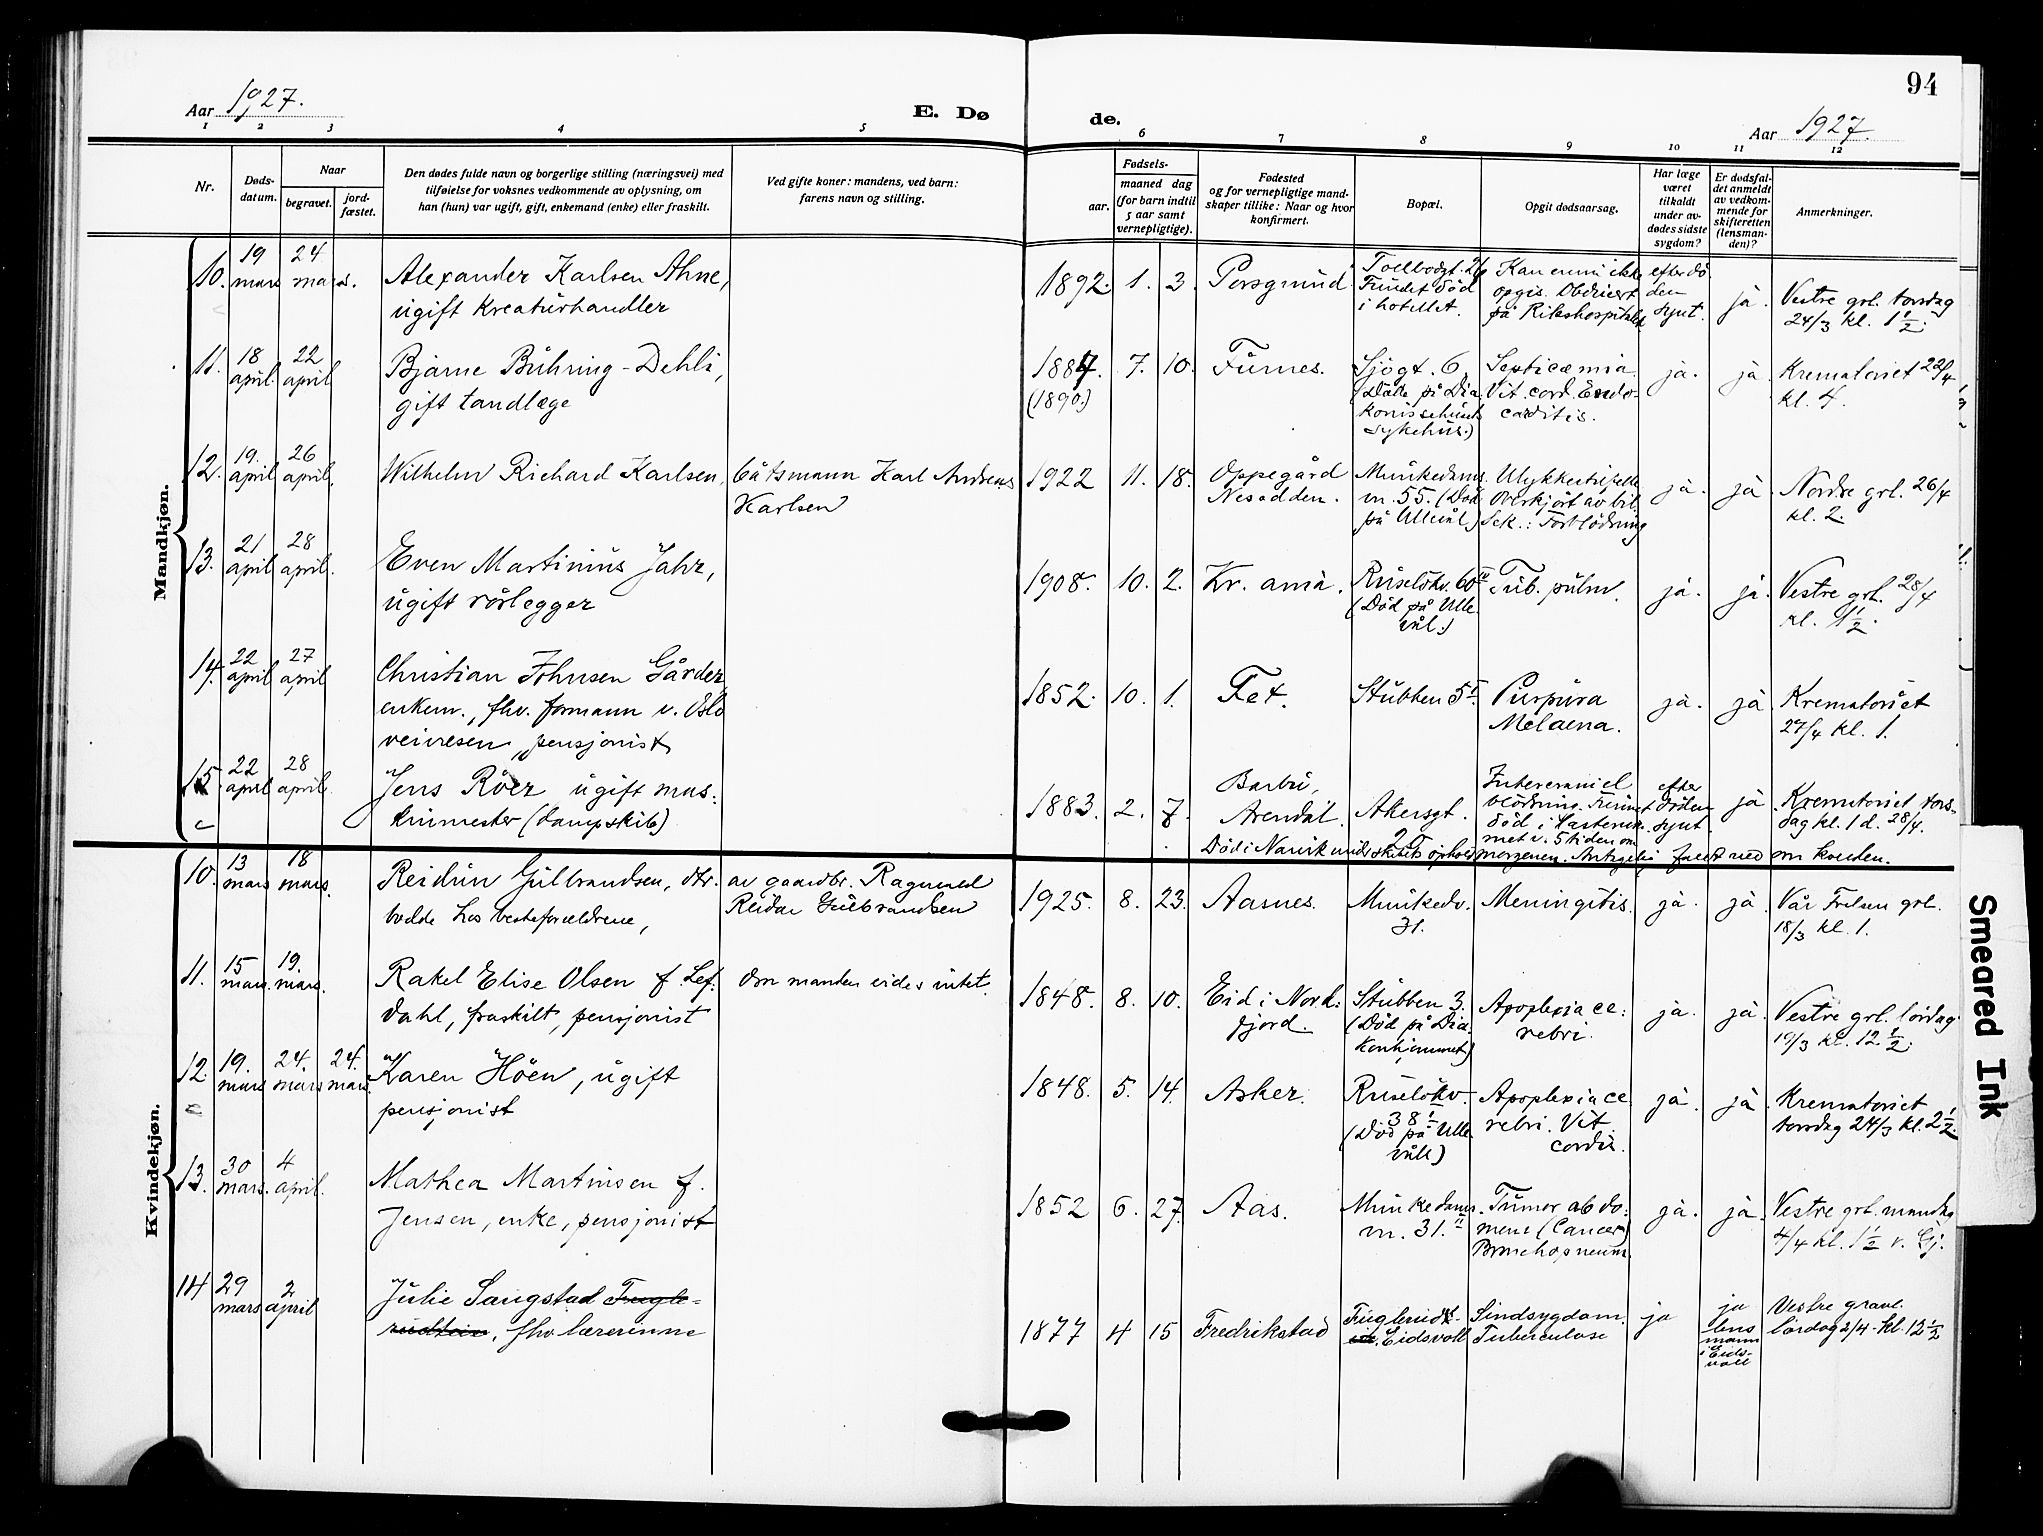 94
Aar 1927.
E. Dø
de.
Aar 1927.
1 2 3 4 5 6 7 8 9 10 11 12
Nr.
Døds-
datum.
Naar
begravet.
jord-
fæstet.
Den dødes fulde navn og borgerlige stilling (næringsvei) med
tilføielse for voksnes vedkommende av oplysning, om
han (hun) var ugift, gift, enkemand (enke) eller fraskilt.
Ved gifte koner: mandens, ved barn:
farens navn og stilling.
Fødsels-
aar.
maaned dag
(for barn indtil
5 aar samt
vernepligtige).
Fødested
og for vernepligtige mand-
skaper tillike: Naar og hvor
konfirmert.
Bopæl.
Opgit dødsaarsag.
Har læge
været
tilkaldt
under av-
dødes sidste
sygdom?
Er dødsfal-
det anmeldt
av vedkom-
mende for
skifteretten
(lensman-
den)?
Anmerkninger.
Mandkjøn.
10.
19
mars
24
mars.
Alexander Karlsen Ahne,
ugift kreaturhandler
1892. 1. 3.
Porsgrund
Toelbodgt. 2
Fundet død
i hotellet.
Kan ennu ikke
opgis. Obducert
på Rikshospitalet
efter dö
den
synt.
ja.
Vestre grl. torsdag
24/3 kl. 1 1/2.
11.
18
april
22
april
Bjarne Bühring-Dehli,
gift tandlæge
1887.
(1890.)
7. 10.
Furnes.
Sjögt. 6
(Döde på Dia
konissehusets
sykehus.)
Septicæmia
Vit. cord. Endo-
carditis.
ja.
ja.
Krematoriet 22/4
kl. 4.
12.
19.
april
26
april.
Wilhelm Richard Karlsen,
båtsmann Karl Andreas
Karlsen
1922 11. 18.
Oppegård
Nesodden.
Munkedams
vn. 55. (Död
på Ullevål)
Ulykkestilfelle
Overkjört av bil
Sek.: Forblödning
ja.
ja.
Nordre grl. 26/4
kl. 2.
13.
21
april
28
april.
Even Martinius Jahr,
ugift rörlegger
1908. 10. 2.
Kr. ania.
Ruselökv. 60 IV
(Död på Ulle
vål.)
Tub. pulm.
ja.
ja.
Vestre grl. 28/4
kl. 1 1/2.
14.
22
april
27
april
Christian Johnsen Gårder
enkem., fhv. formann v. Oslo
veivesen, pensjonist
1852. 10. 1.
Fet.
Stubben 5 I.
Purpura
Melaena.
ja.
ja
Krematoriet
27/4 kl. 1.
15
22
april
28
april.
Jens Röer ugift mas-
kinmester (dampskib)
1883. 2. 7.
Barbu,
Arendal.
Akersgt.
Intercraniel
blödning. Funnet
död i lasterom-
met i 5 tiden om
morgenen. Antagelig faldt ned om kvelden.
efter
döden
synt.
ja
Krematoriet tors-
dag kl. 1 d. 28/4.
Död i Narvik under skibets ophold
Kvindekjøn.
10.
13
mars
18
mars.
Reidun Gulbrandsen, dtr.
bodde hos besteforældrene,
av gaardbr. Ragnvald
Reidar Gulbrandsen
1925. 8. 23.
Aasnes.
Munkedv.
31.
Meningitis.
ja.
ja.
Vår Frelsers grl.
18/3 kl. 1.
11.
15
mars.
19.
mars.
Rakel Elise Olsen f. Lef.
dahl, fraskilt, pensjonist
Om manden vides intet.
1848. 8. 10.
Eid i Nord-
fjord.
Stubben 3.
(Död på Dia
konhjemmet)
Apoplexia ce:
rebri.
ja.
ja.
Vestre grl. lördag
19/3 kl. 12 1/2.
12.
19.
mars
24.
mars
24.
mars.
Karen Höen, ugift
pensjonist
1848. 5. 14.
Asker.
Ruselökv.
38 I
(Död på Ulle
vål)
Apoplexia ce
rebri. Vit.
cordis.
ja.
ja.
Krematoriet
torsdag 24/3 kl. 2 1/2.
13.
30
mars.
4
april.
Mathea Martinsen f.
Jensen, enke, pensjonist
1852 6. 27.
Aas.
Munkedams.
vn. 31. II
Tumor abdo:
mens (Cancer)
Bronchopneum.
ja.
ja.
Vestre grl. mandag
4/4 kl. 1 1/2 v. Gj.
14
29
mars
2
april
Julie Langstad Fugle-
rudtein, fhv lærerinne
1877 4 15
Fredrikstad
Fuglerudt-
Eidsvoll
Sindsygdom.
Tuberculose
ja
ja
lens
mann
i Eids-
voll
Vestre gravl.
lördag 2/4 - kl. 12 1/2
Smeared Ink